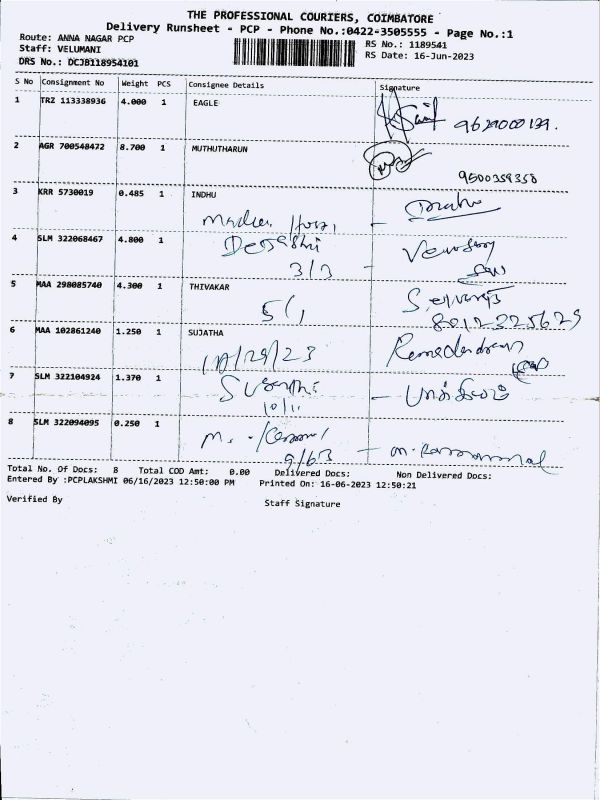 THE PROFESSIONAL COURIERS, COIMBATORE
Delivery Runsheet - PCP - Phone No.:0422-3505555 - Page No.:1
Route: ANNA NAGAR PCP
RS No.: 1189541
Staff: VELUMANI
RS Date: 16-Jun-2023
DRS No.: DCJB118954101
S No Consignment No Weight PCS Consignee Details Signature
1 TRZ 113338936 4.000 1 EAGLE
2 AGR 700548472 8.700 1 MUTHUTHARUN
9500359358
3 KRR 5730019 0.485 1 INDHU
4 SLM 322068467 4.800 1
3/3
5 MAA 298085740 4.300 1 THIVAKAR
8012325629
6 MAA 102861240 1.250 1 SUJATHA
7 SLM 322104924 1.370 1
10/11
8 SLM 322094095 0.250 1
9/63
Total No. Of Docs: 8 Total COD Amt: 0.00 Delivered Docs: Non Delivered Docs:
Entered By :PCPLAKSHMI 06/16/2023 12:50:00 PM Printed On: 16-06-2023 12:50:21
Verified By Staff Signature